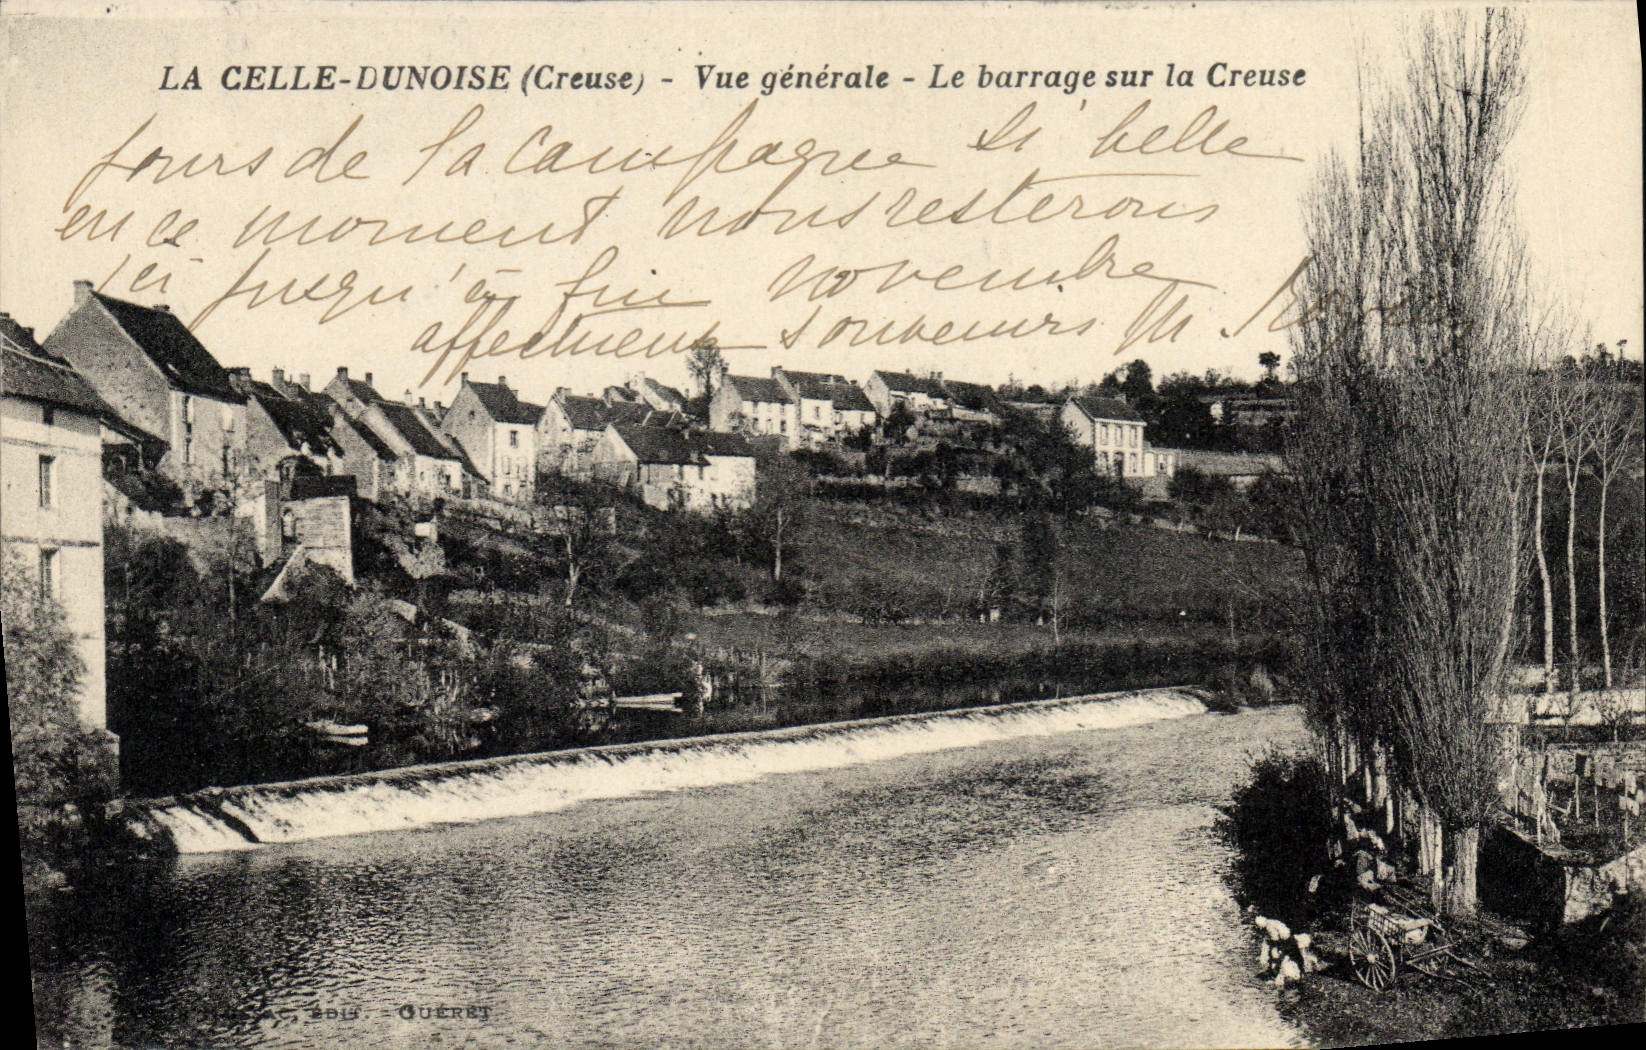 LA CELLE-DUNOISE (Creuse) - Vue générale - Le barrage sur la Creuse
jours de la campagne si belle
en ce moment nous resterons
ici jusqu'à fin novembre
affectueux souvenirs M.
EDIT. - GUÉRET